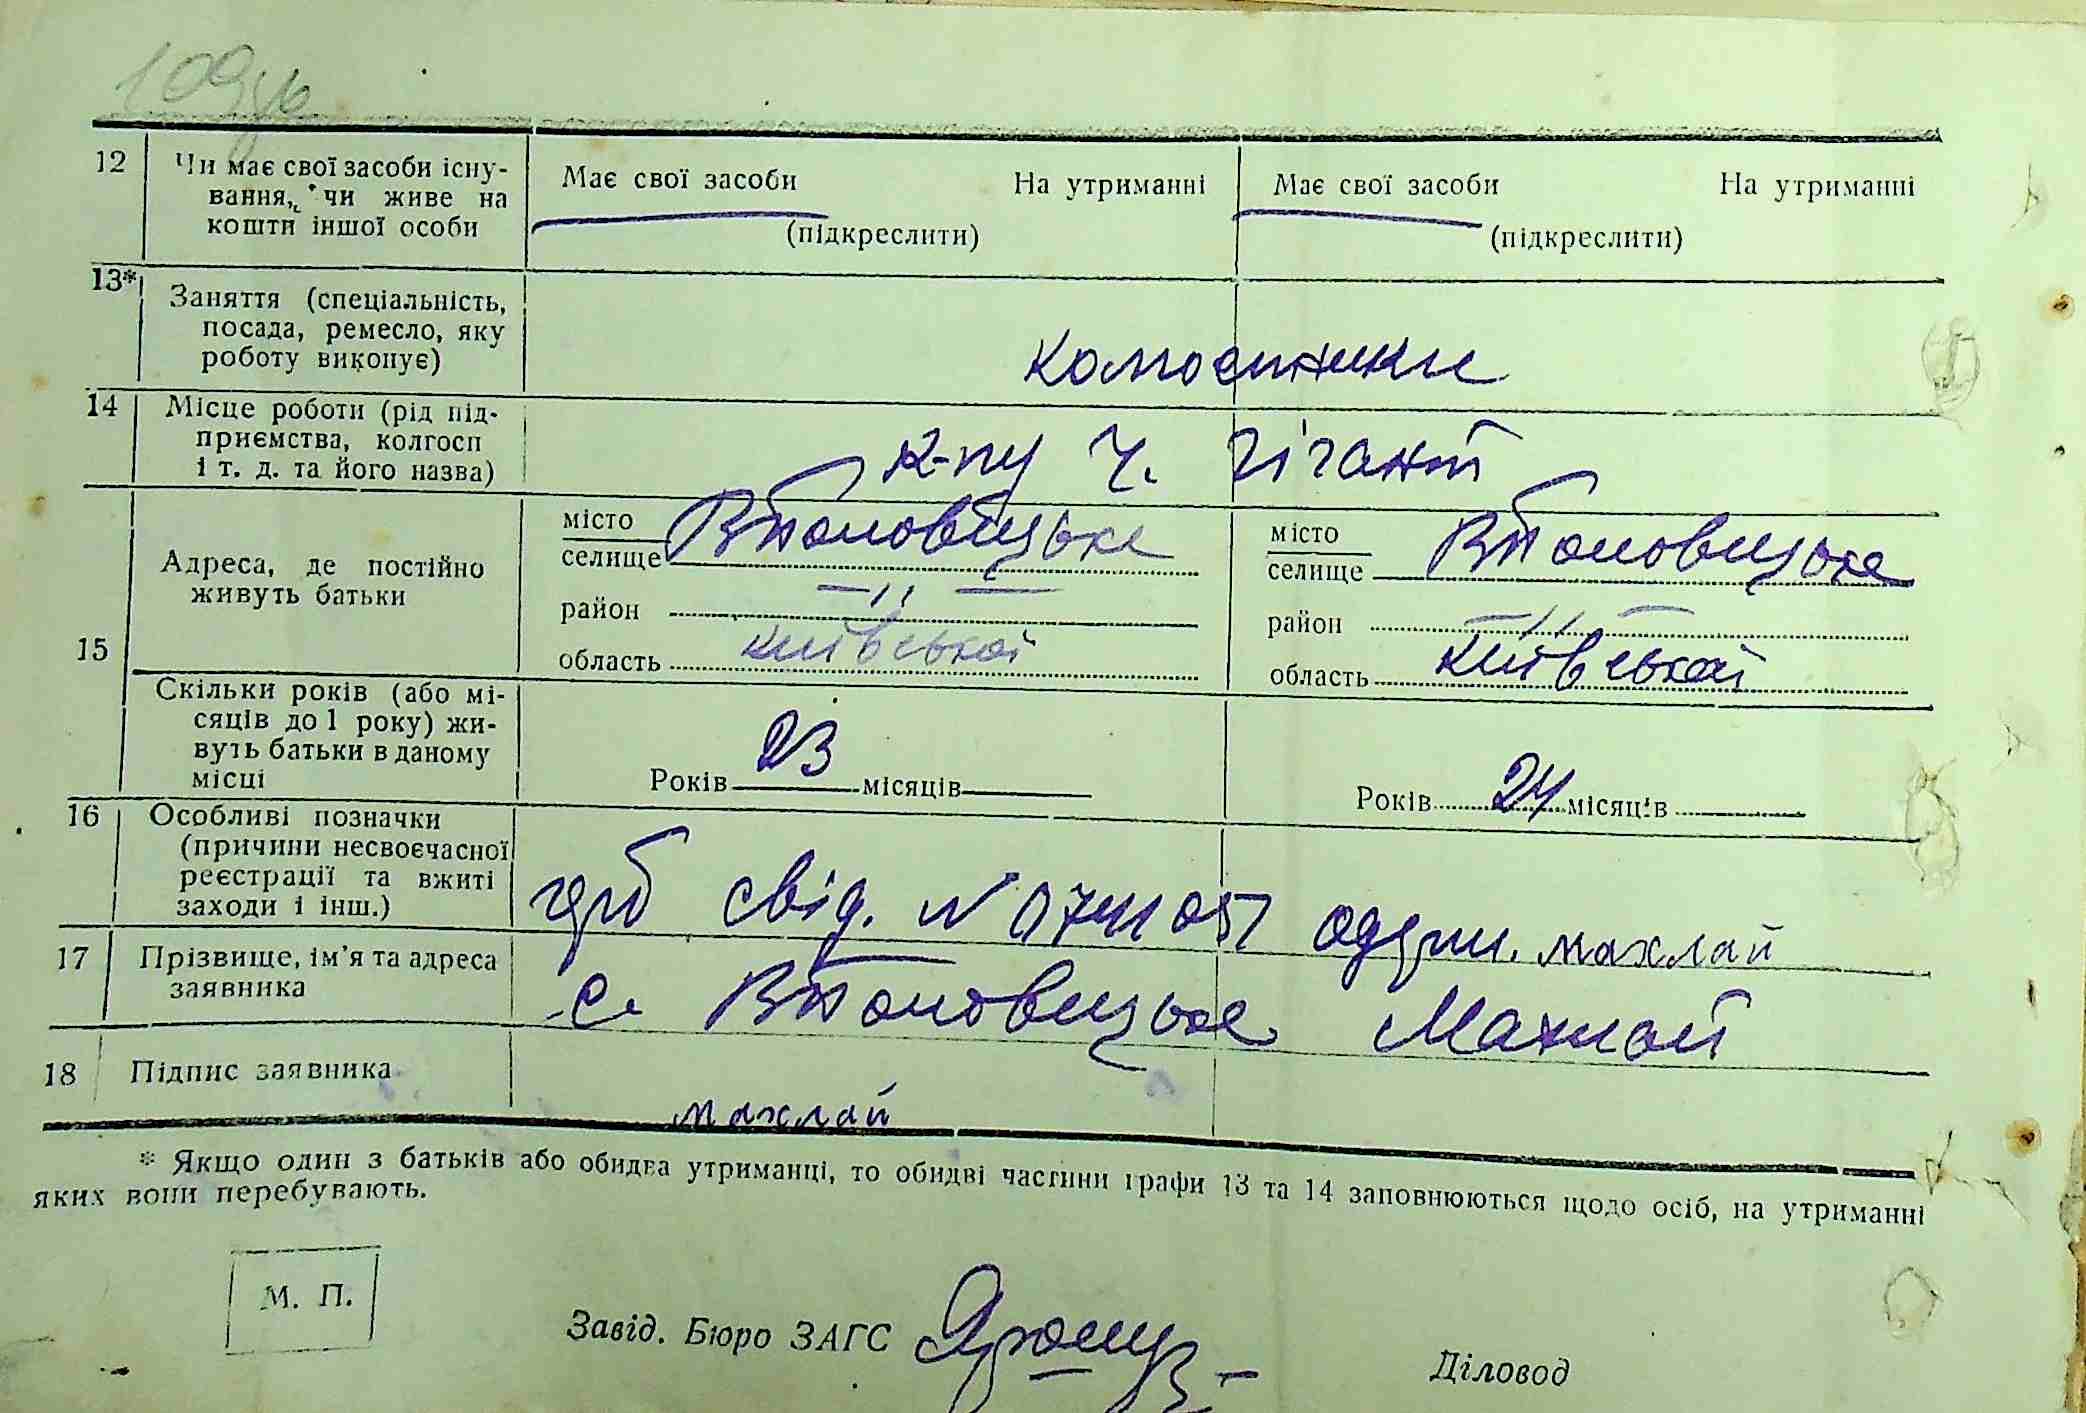 12 Чи має свої засоби існу-
вання, чи живе на
кошти іншої особи
Має свої засоби На утриманні
(підкреслити)
Має свої засоби На утриманні
(підкреслити)
13* Заняття (спеціальність,
посада, ремесло, яку
роботу виконує)
колгоспники
14 Місце роботи (рід під-
приємства, колгосп
і т. д. та його назва)
к-пу Ч. Гігант
15
Адреса, де постійно
живуть батьки
місто
селище
район — ,, —
область київської
місто
селище
район — ,, —
область київської
Скільки років (або мі-
сяців до 1 року) жи-
вуть батьки в даному
місці
Років 23 місяців
Років 24 місяців
16 Особливі позначки
(причини несвоєчасної
реєстрації та вжиті
заходи і інш.)
свід. N махлай
17 Прізвище, ім'я та адреса
заявника
с. Махлай
18 Підпис заявника
махлай
* Якщо один з батьків або обидва утриманці, то обидві частини графи 13 та 14 заповнюються щодо осіб, на утриманні
яких вони перебувають.
М. П.
Завід. Бюро ЗАГС
Діловод